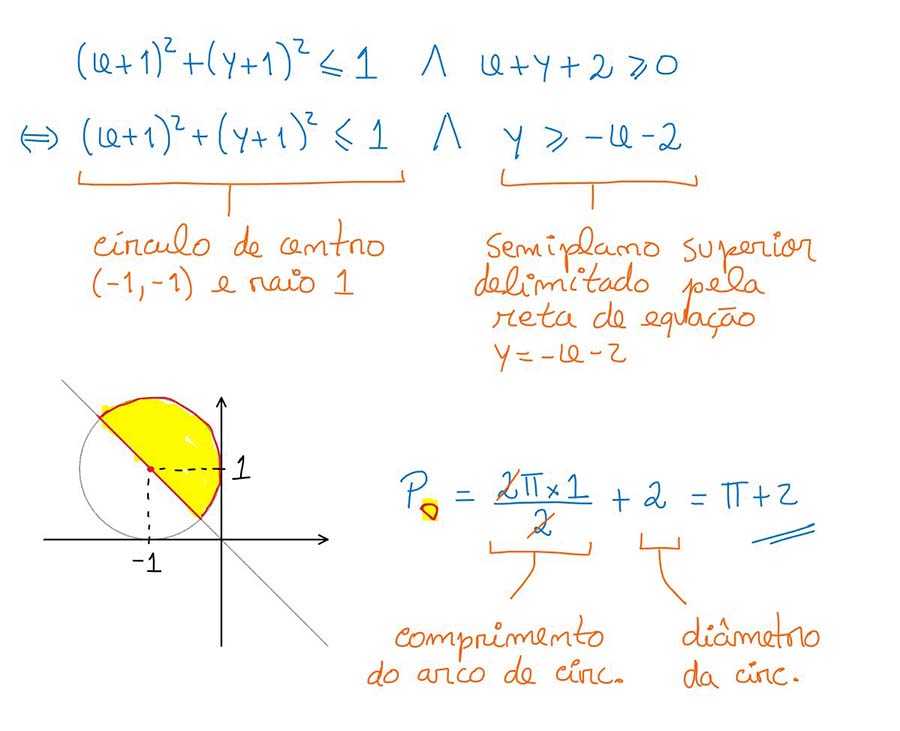 (x+1)² + (y+1)² ≤ 1 ∧ x+y+2 ≥ 0
⇔ (x+1)² + (y+1)² ≤ 1 ∧ y ≥ -x-2
círculo de centro
(-1,-1) e raio 1
semiplano superior
delimitado pela
reta de equação
y = -x-2
1
-1
P = 2π×1/2 + 2 = π+2
comprimento
do arco de circ.
diâmetro
da circ.